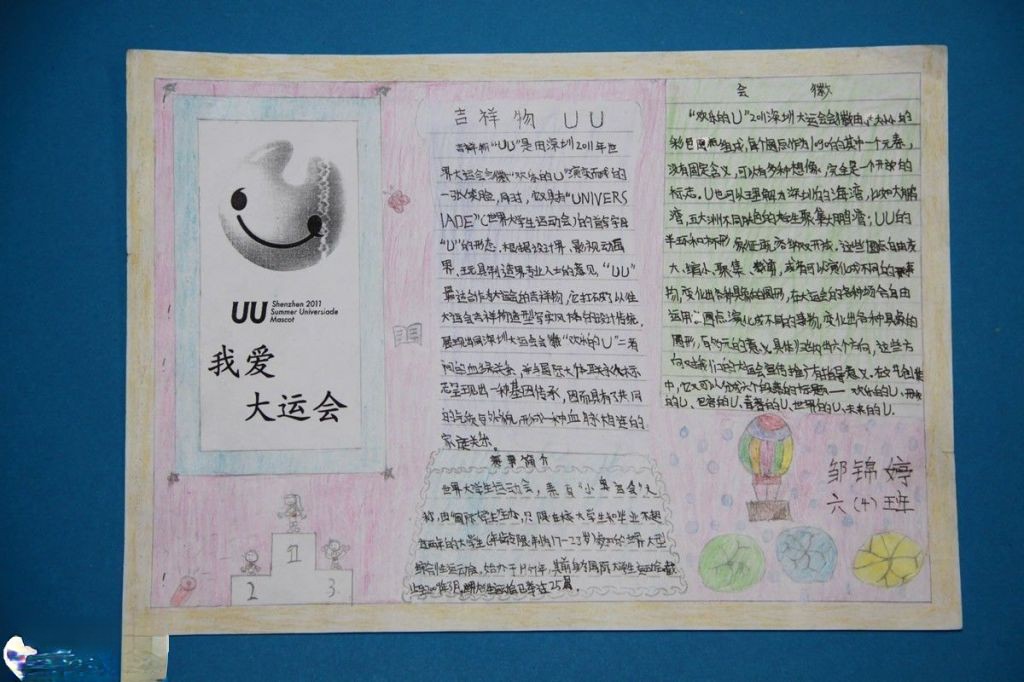 UU
Shenzhen 2011
Summer Universiade
Mascot
我爱
大运会
1
2
3
吉祥物 UU
吉祥物“UU”是由深圳2011年世
界大运会会徽“欢乐的U”演变而来的
一张笑脸,同时,它具有“UNIVERS
IADE”(世界大学生运动会)的首写字母
“U”的形态.根据设计界、影视动画
界、玩具制造界专业人士的意见,“UU”
最适合作为大运会的吉祥物,它打破了以往
大运会吉祥物造型写实风格的设计传统,
展现出同深圳大运会会徽“欢乐的U”二者
间的血缘关系,并与国际大体联标
志呈现出一种基因传承,因而具有了共同
的气质与外貌,形成一种血脉相连的
家庭关系.
赛事简介
世界大学生运动会,素有“小奥运会”之
称,由国际大体联主办,只限在校大学生和毕业不超
过两年的大学生(年龄限制为17-28岁)参加的世界大型
综合性运动会,始办于1959年,其前身为国际大学生运动会
25届.
会 徽
“欢乐的U”2011深圳大运会会徽由
彩色圆点组成,每个圆点作为的其中一个元素,
没有固定含义,可以有多种想像,完全是一个开放的
标志.U也可以理解为深圳的海湾,比如大鹏
湾,五大洲不同肤色的学生聚集大鹏湾;UU的
半环和杯形 象征 开放,这些圆点自由放
大、缩小、聚集、,或者可以演化成不同的
物,变化出各种具象的图形,在大运会的各种场合自由
运用.圆点演化成不同的事物,变化出各种具象的
图形,与的意义具体归纳出六个方向,这些方
向对我们的大运会宣传推广有指导意义,在
中,它又可以分成六个的标题—— 欢乐的U、
的U、包容的U、青春的U、世界的U、未来的U.
邹锦婷
六(4)班